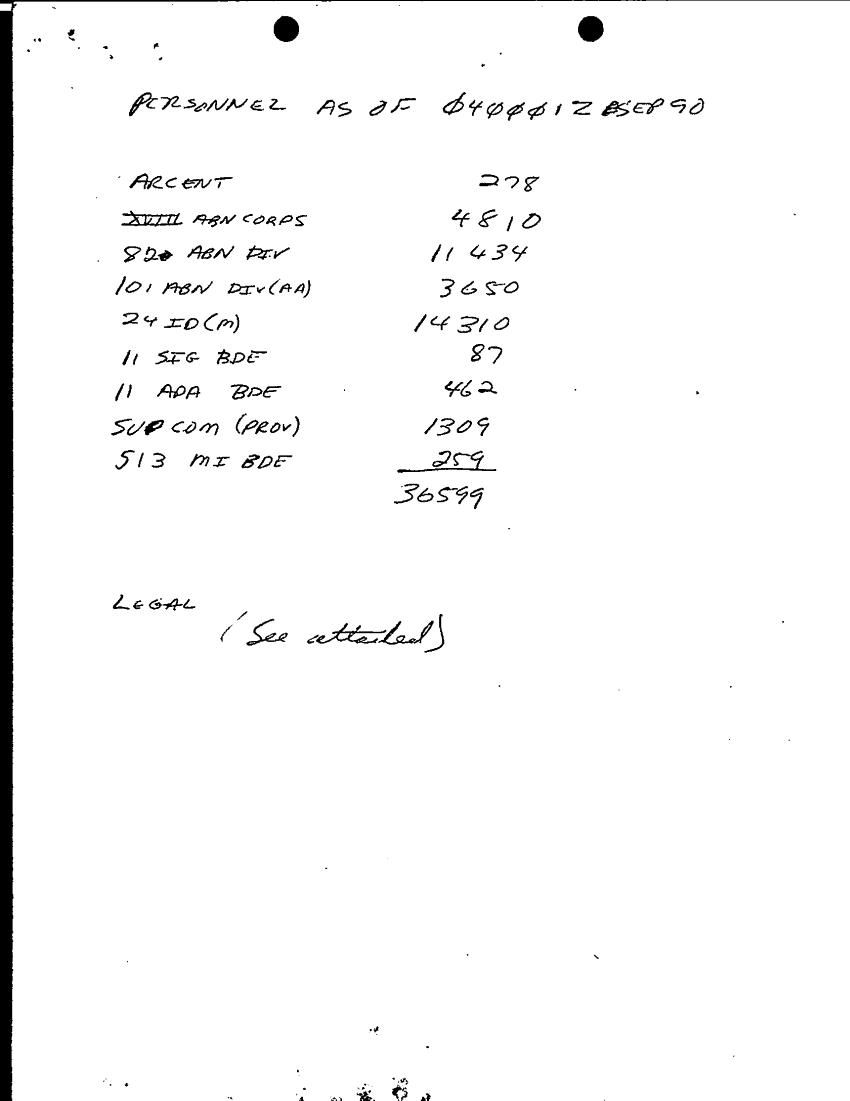 PERSONNEL AS OF Ø4ØØØ1Z SEP 90
ARCENT 278
XVIII ABN CORPS 4810
82 ABN DIV 11434
101 ABN DIV (AA) 3650
24 ID (M) 14310
11 SIG BDE 87
11 ADA BDE 462
SUPCOM (PROV) 1309
513 MI BDE 259
36599
LEGAL
(See attached)